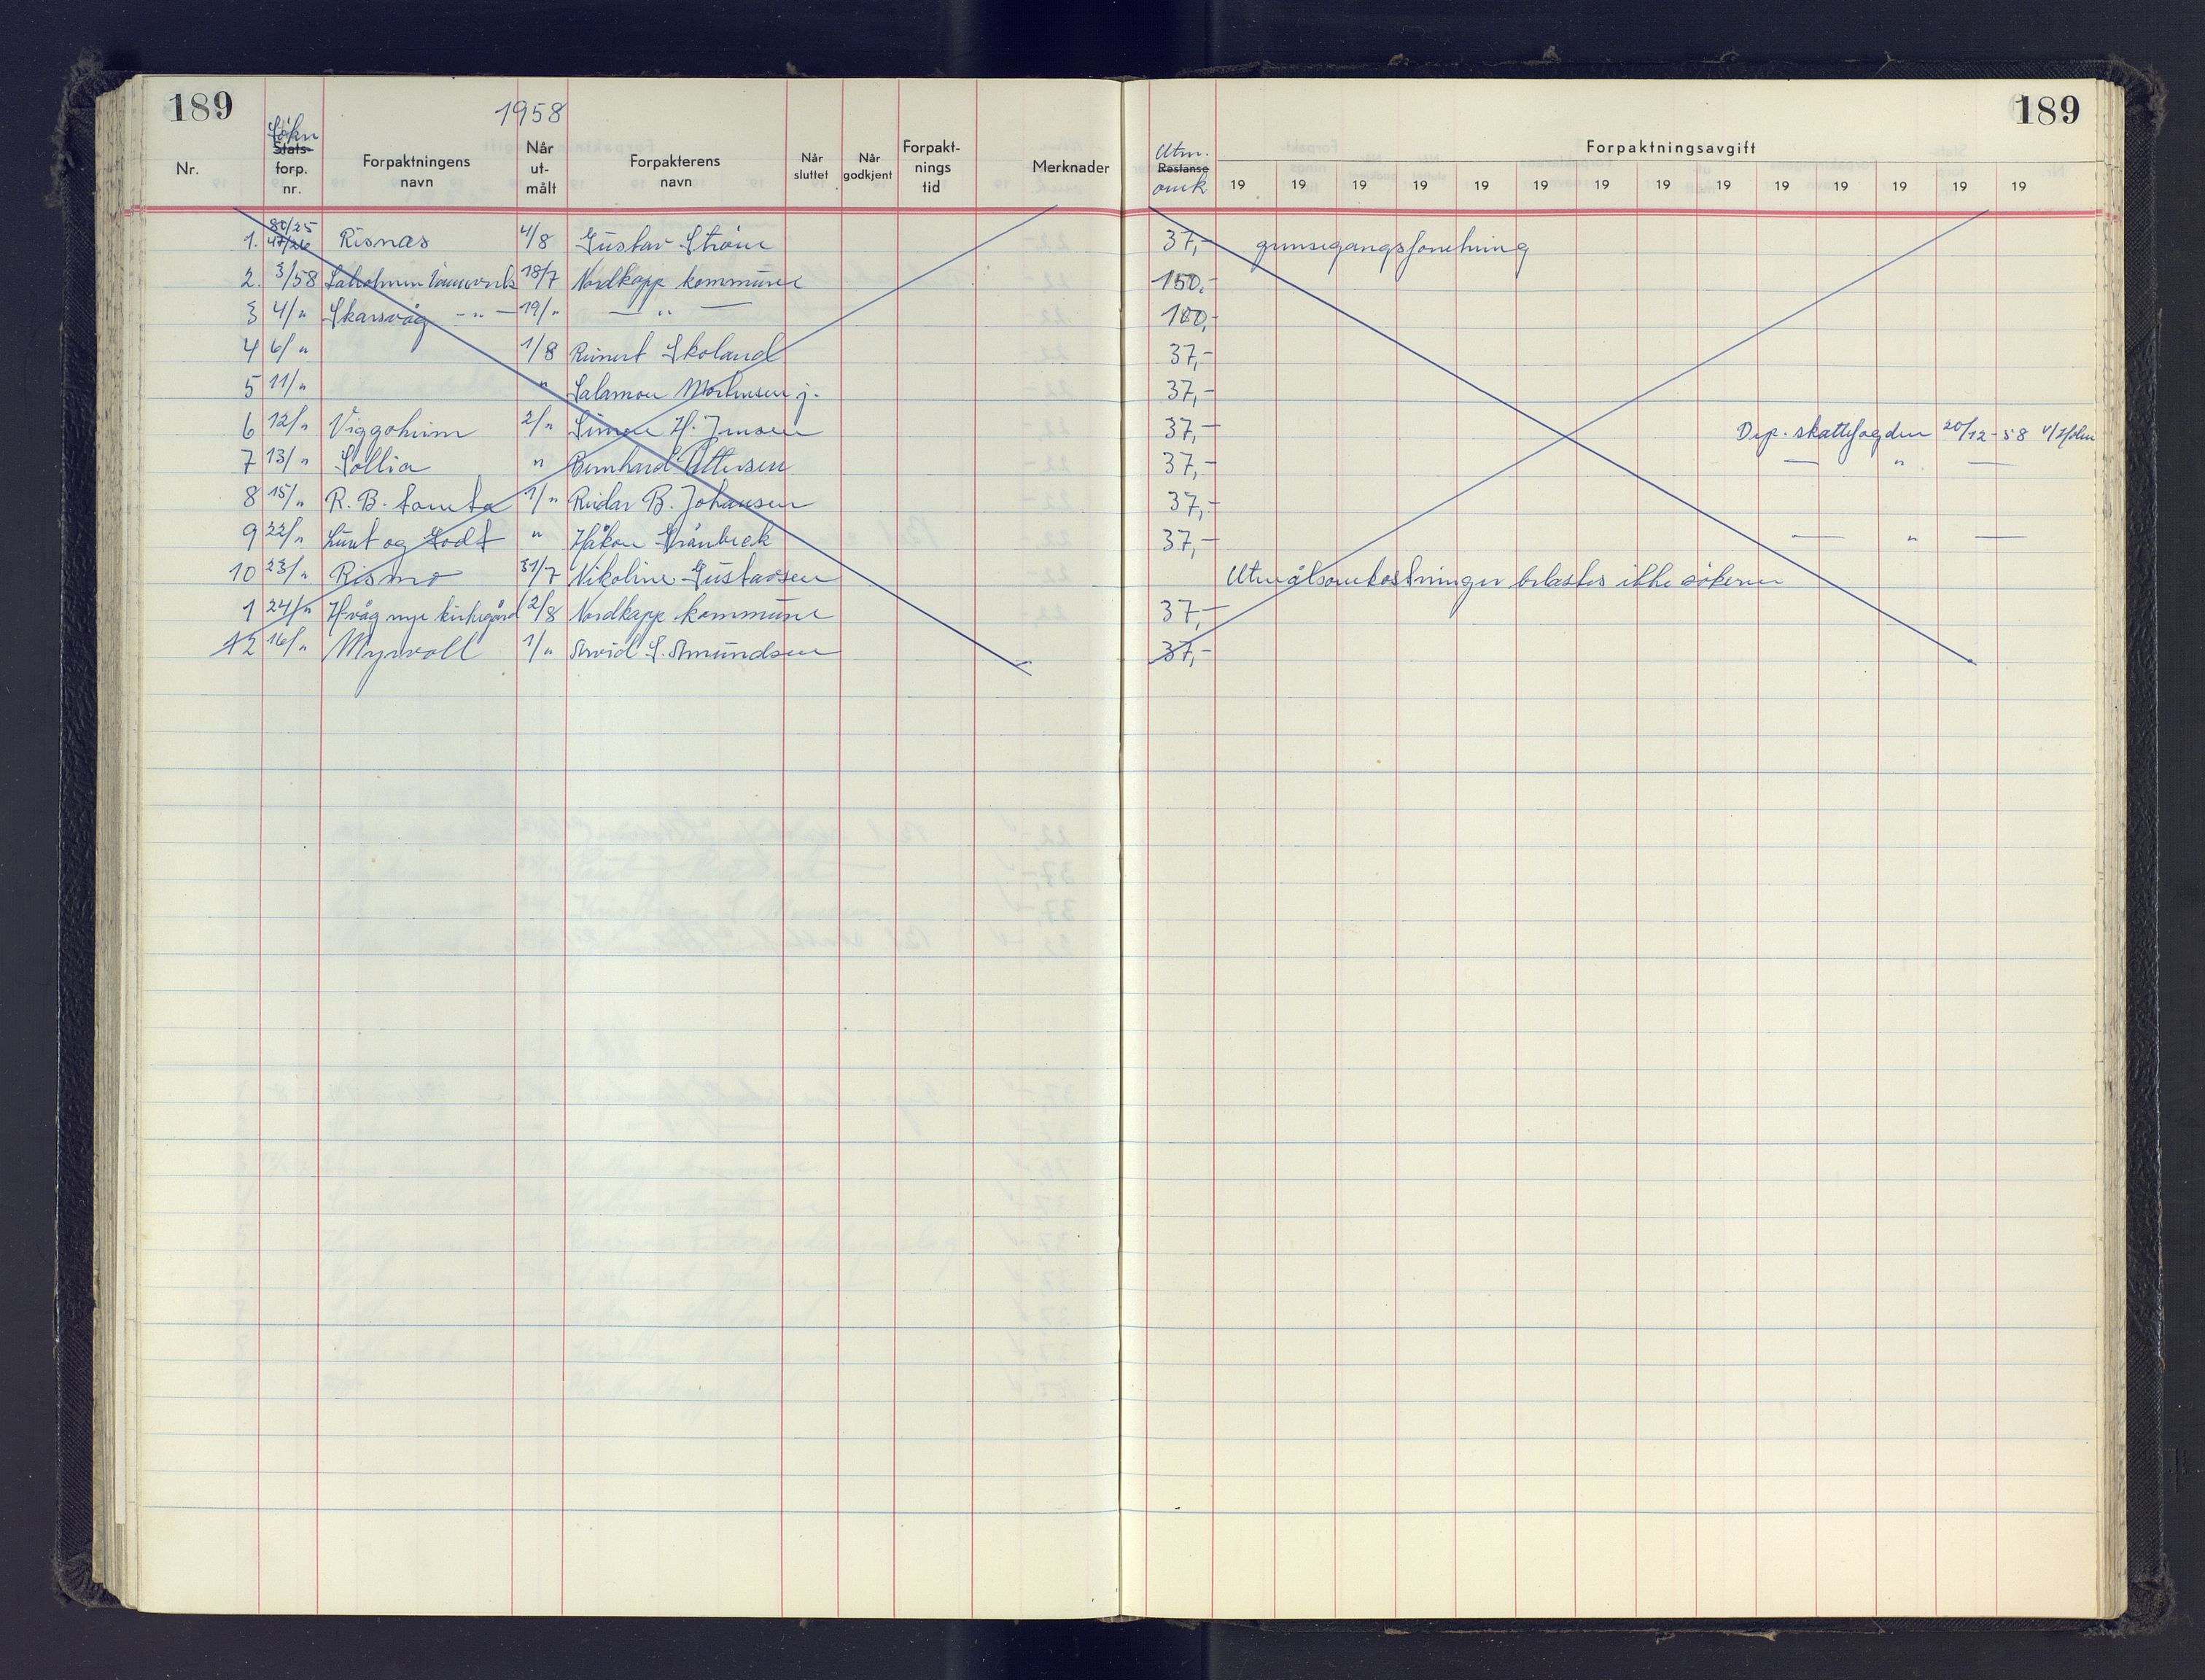 189
1958
189
Søkn
Nr. Stats- forp. nr. Forpaktningens navn Når ut- målt Forpakterens navn Når sluttet Når godkjent Forpakt- nings tid Merknader Utm. Restanse omk Forpaktningsavgift
19 19 19 19 19 19 19 19 19 19 19 19 19 19
1. 80/25 47/26 Risnæs 4/8 Gustav Strøm 37,- grensegangsforretning
2. 3/58 vannverk 18/7 Nordkapp kommune 150,-
3 4/" Skarsvåg -"- 19/" — " — 100,-
4 6/" 1/8 Reinert Skoland 37,-
5 11/" " Salamon Mortensen j. 37,-
6 12/" Viggoheim 2/" Simon H. Jensen 37,- Dep. skattefogden 20/12-58 v/Holm
7 13/" Sollia " Bernhard Ottersen 37,- — " —
8 15/" R. B. tomta 1/" Reidar B. Johansen 37,-
9 22/" Lunt og Godt " Håkon Grånbeck 37,- — " —
10 23/" Rismo 31/7 Nikoline Gustavsen Utmålsomkostninger belastes ikke søkeren
1 24/" Hvåg nye kirkegård 2/8 Nordkapp kommune 37,-
12 16/" Myrvoll 1/" Arvid S. Amundsen 37,-